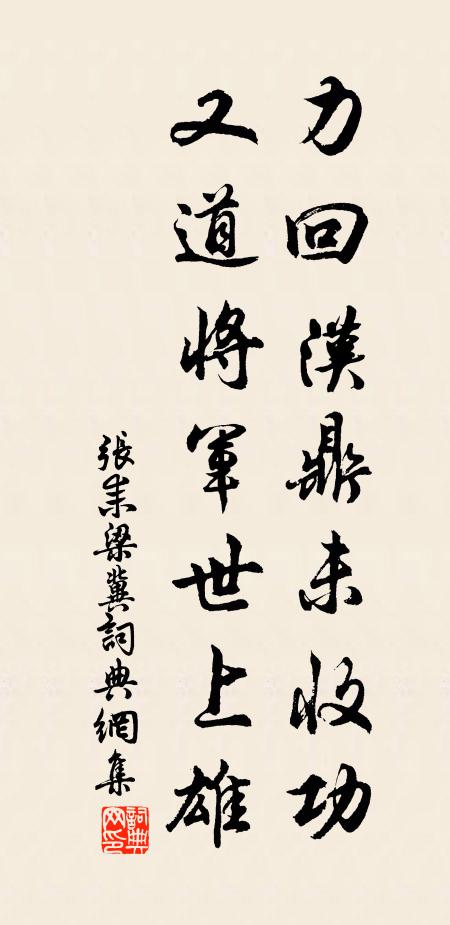 力回漢鼎未收功
又道將軍世上雄
張耒梁冀詞典網集
詞典網印